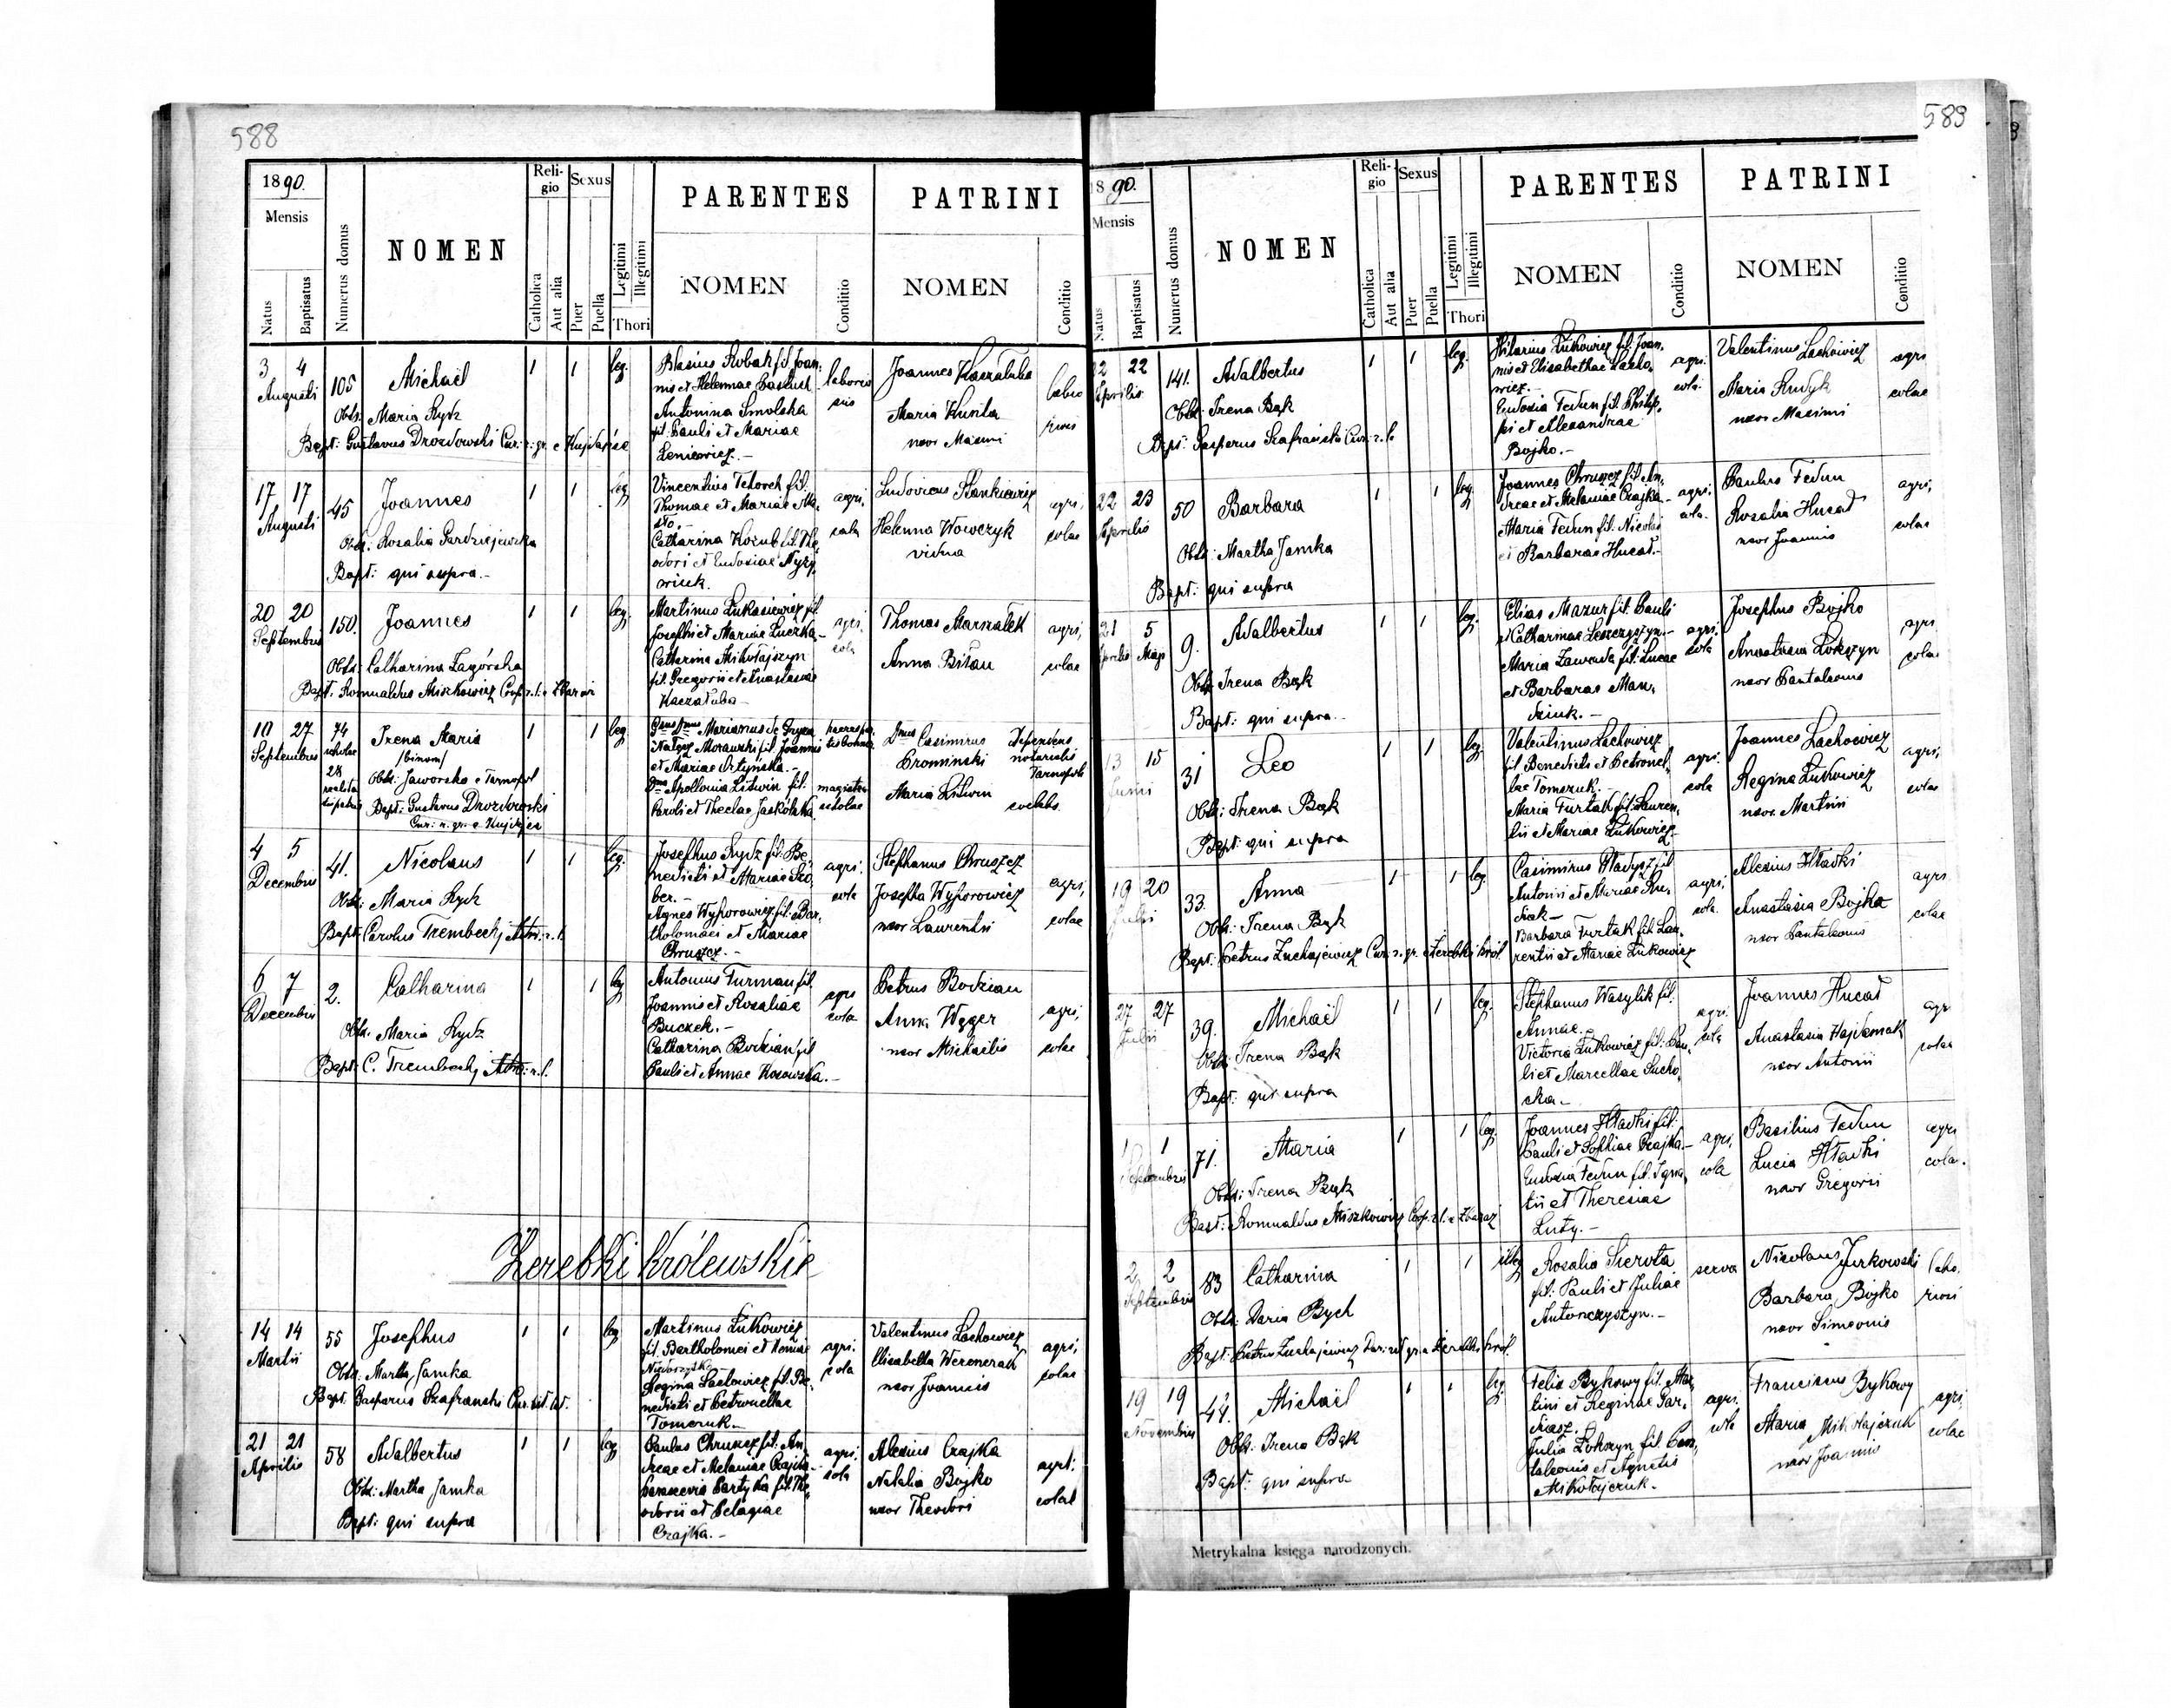 588
1890.
Mensis
Natus
Baptisatus
Numerus domus
NOMEN
Religio
Catholica
Aut alia
Sexus
Puer
Puella
Legitimi
Illegitimi
Thori
PARENTES
NOMEN
Conditio
PATRINI
NOMEN
Conditio
3 4
Augusti
105
Michaël
Obst: Maria Rydz
Bapt: Gustavus Drozdowski Cur. r. gr. e
1 1 leg.
Blasius Robak fil. Joan-
nis et Helennae
Antonina Smolska
fil. Pauli et Mariae
labora
rius
Joannes Kaczałuba
Maria
uxor Maximi
17 17
Augusti
45
Joannes
Obst: Rosalia
Bapt: qui supra.-
1 1 leg
Vincentius fil.
Thomae et Mariae
Catharina Kozub fil. The-
odori et Eudoxiae
agri-
cola
Ludovicus Stankiewicz
Helenna Wowczyk
vidua
agri,
colae
20 20
Septembris
150.
Joannes
Obst: Catharina Zagórska
Bapt. Romualdus Miszkowicz Coop. r. l. e
1 1 leg.
Martinus Łukasiewicz fil.
Josephi et Mariae Luczka.-
Catharina Mikołajszyn
fil. Gregorii et Anastasiae
Kaczałuba.-
agri.
cola
Thomas Marszałek
Anna Bilau
agri,
colae
10 27
Septembris
74
scholae
28
Irena Maria
/binom/
Obst: Jaworska e Tarnopol
Bapt: Gustavus Drozdowski
Cur: r. gr. e
1 1 leg
Marianus de
Morawski fil. Joannis
et Mariae
Apollonia Litwin fil.
Caroli et Theclae Jaskólska
magistra
scholae
Casimirus
Prominski
notarialis
Maria Litwin
coelebs.
4 5
Decembris
41.
Nicolaus
Obst: Maria Rydz
Bapt: Carolus Trembecki
1 1 leg.
Josephus Rydz fil. Be-
nedicti et Mariae Sko-
ber.-
Agnes Wyhorowicz fil. Bar-
tholomaei et Mariae
Chruszcz.-
agri.
cola
Stephanus Chruszcz
Josepha Wyhorowicz
uxor Laurentii
agri,
colae
6 7
Decembris
2.
Catharina
Obst: Maria Rydz
Bapt: C. Trembecki
1 1 leg
Antonius Furman fil.
Joannis et Rosaliae
Buczek.-
Catharina Bodzian fil
Pauli et Annae Kosowska.-
agri
cola
Petrus Bodzian
Anna Węger
uxor Michaëlis
agri,
colae
Żerebki królewskie
14 14
Martii
55
Josephus
Obst: Martha Jamka
Bapt. Gasparus Szafranski Cur. rit. lat.
1 1 leg
Martinus Łukowicz
fil. Bartholomei et
Regina Lachowicz fil. Be-
nedicti et Petronellae
Tomczuk.-
agri.
cola
Valentinus Lachowicz
Elisabetha
uxor Joannis
agri,
colae
21 21
Aprilis
58
Adalbertus
Obst: Martha Jamka
Bapt: qui supra
1 1 leg
Paulus Chruszcz fil. An-
dreae et Melaniae Czajka.-
Parascevia Partyka fil. The-
odorii et Pelagiae
Czajka.-
agri.
cola
Alexius Czajka
Natalia Bojko
uxor Theodori
agri.
colae
589
1890.
Mensis
Natus
Baptisatus
Numerus domus
NOMEN
Religio
Catholica
Aut alia
Sexus
Puer
Puella
Legitimi
Illegitimi
Thori
PARENTES
NOMEN
Conditio
PATRINI
NOMEN
Conditio
22 22
Aprilis
141.
Adalbertus
Obst: Irena Bąk
Bapt: Gasperus Szafrański Cur. r. l.
1 1 leg.
Hilarius Łukowicz fil. Joan-
nis et Elisabethae Lacho-
wicz.-
Eudoxia Fedun fil. Philip-
pi et Alexandrae
Bojko.-
agri.
cola.
Valentinus Lachowicz
Maria Rudyk
uxor Maximi
agri
colae
22 23
Aprilis
50
Barbara
Obst: Martha Jamka
Bapt: qui supra
1 1 leg.
Joannes Chruszcz fil. An-
dreae et Melaniae Czajka.-
Maria Fedun fil. Nicolai
et Barbarae Hucał.-
agri.
cola.
Paulus Fedun
Rosalia Hucał
uxor Joannis
agri,
colae
21 5
Aprilis Maji
9.
Adalbertus
Obst: Irena Bąk
Bapt: qui supra.-
1 1 leg.
Elias Mazur fil. Pauli
et Catharinae Leszczyszyn.-
Maria Zawada fil. Lucae
et Barbarae Man-
dziuk.-
agri.
cola
Josephus Bojko
Anastasia Łokszyn
uxor Pantaleonis
agri.
colae
13 15
Junii
31
Leo
Obst: Irena Bąk
Bapt: qui supra
1 1 leg.
Valentinus Lachowicz
fil. Benedicti et Petronel-
lae Tomczuk.-
Maria Furtak fil. Lauren-
tii et Mariae Łukowicz
agri.
cola
Joannes Lachowicz
Regina Łukowicz
uxor Martini
agri,
colae
19 20
Julii
33.
Anna
Obst: Irena Bąk
Bapt: Petrus Zuchajewicz Cur. r. gr. e Żerebki król.
1 1 leg.
Casimirus Władysz fil
Antonii et Mariae
Barbara Furtak fil. Lau-
rentii et Mariae Łukowicz
agri,
cola.
Alexius Hładki
Anastasia Bojko
uxor Pantaleonis
agri
colae
27 27
Julii
39.
Michaël
Obst: Irena Bąk
Bapt: qui supra
1 1 leg.
Stephanus Wasylik fil.
Annae.-
Victoria Łukowicz fil. Pau-
li et Marcellae Sucho-
cka.-
agri.
cola
Joannes Hucał
Anastasia Hajdamak
uxor Antonii
agri
colae
1 1
Septembris
71.
Maria
Obst: Irena Bąk
Bapt: Romualdus Miszkowicz Coop. r. l. e Zbaraż
1 1 leg.
Joannes Hładki fil.
Pauli et Sophiae Czajka.-
Eudoxia Fedun fil. Igna-
tii et Theresiae
Luty.-
agri,
cola
Basilius Fedun
Lucia Hładki
uxor Gregorii
agri
colae.
2 2
Septembris
83
Catharina
Obst: Daria Bych
Bapt: Petrus Zuchajewicz
1 1 illeg
Rosalia Sierota
fil. Pauli et Juliae
Antonczyszyn.-
serva
Nicolaus Jurkowski
Barbara Bojko
uxor Simeonis
labo-
riosi
19 19
Novembris
44.
Michaël
Obst: Irena Bąk
Bapt: qui supra
1 1 leg
Felix Bykowy fil. Mar-
tini et Reginae Gar-
Julia Łokszyn fil. Pan-
taleonis et Agnetis
Mikołajczuk.
agri.
cola
Franciscus Bykowy
Maria Mikołajczuk
uxor Joannis
agri,
colae
Metrykalna księga narodzonych.